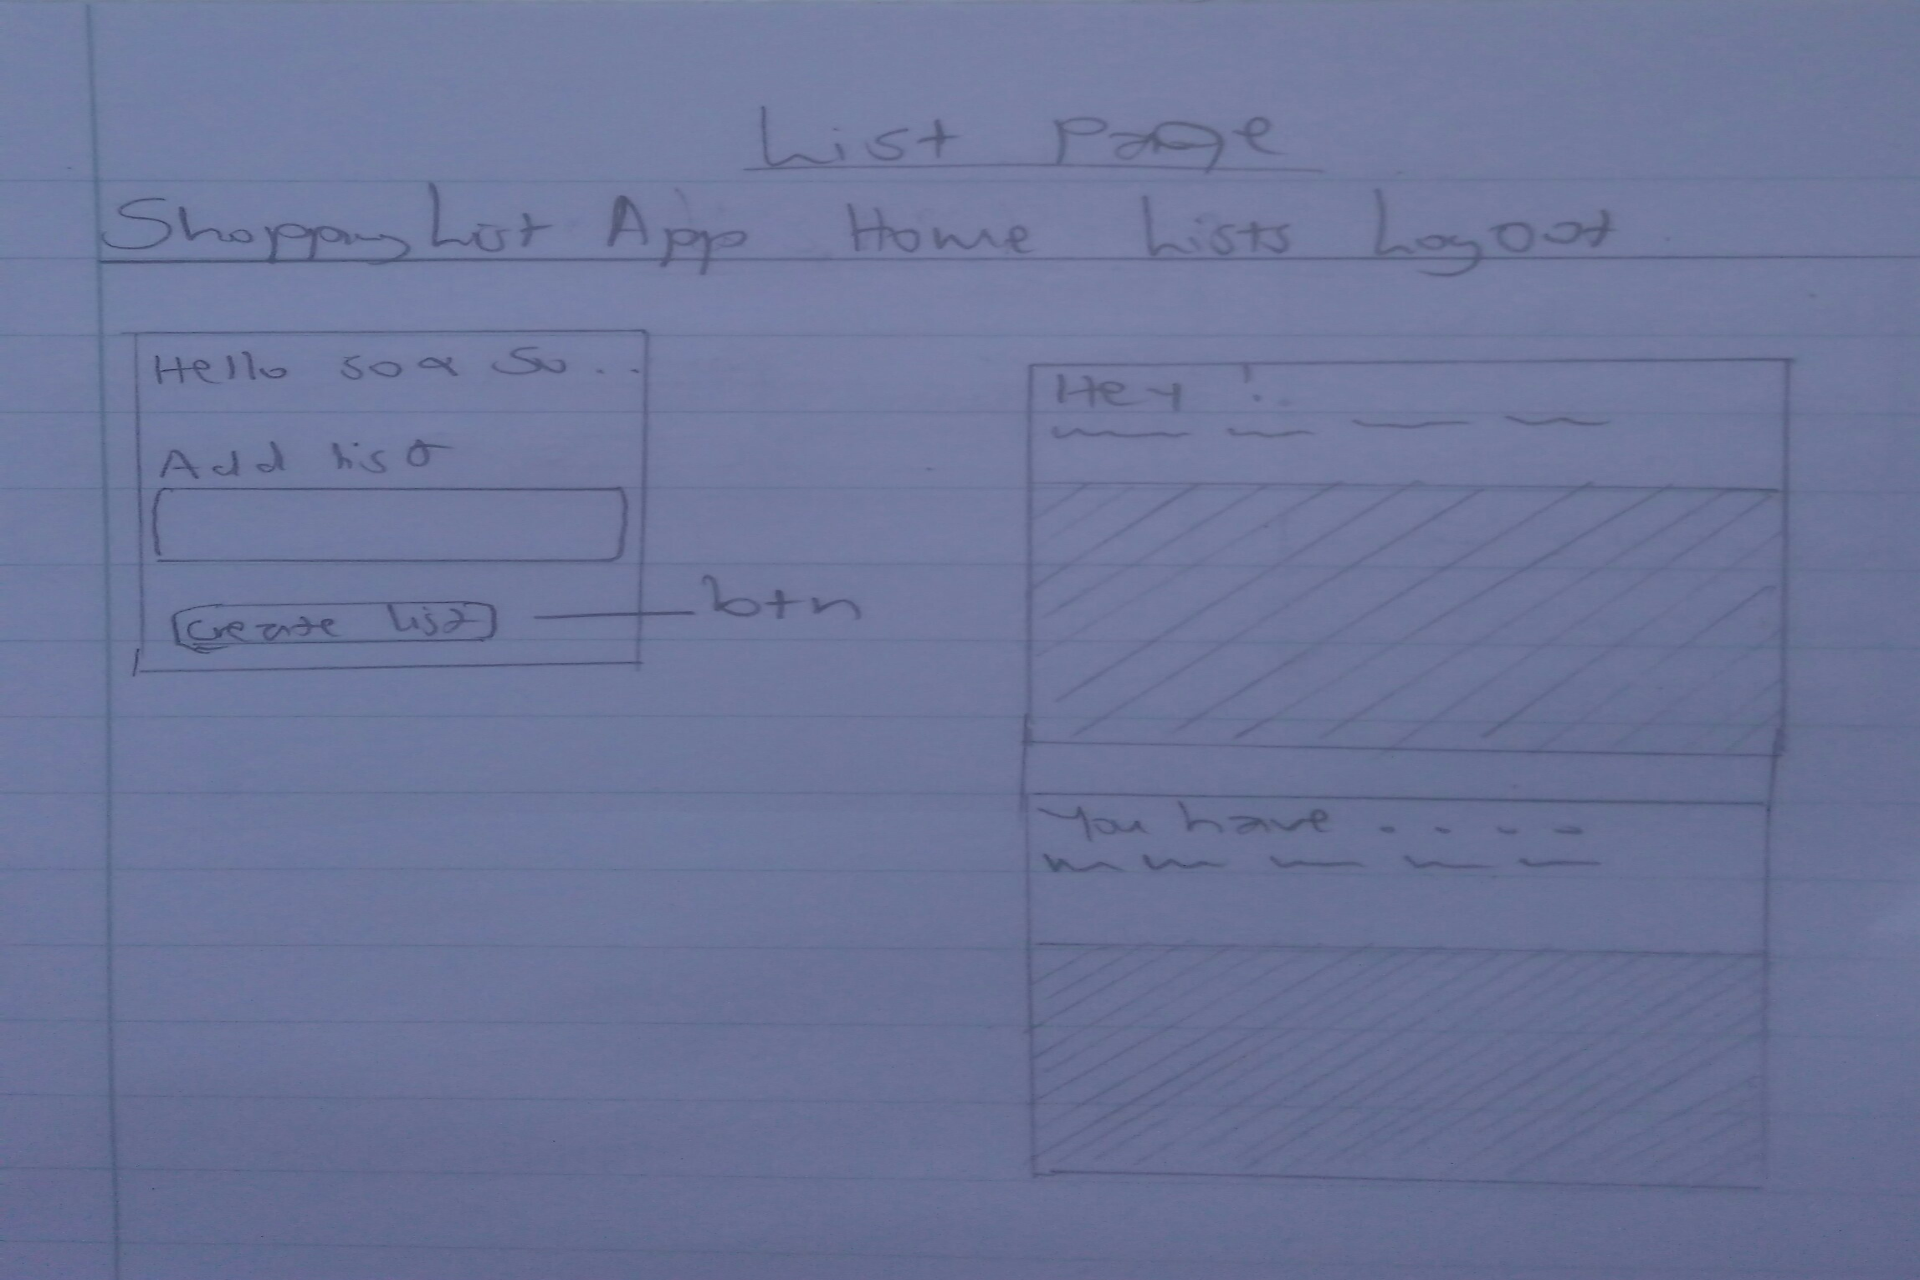 List Page
Shopping List App Home Lists Logout
Hello so & so..
Add list
Create list
btn
Hey !..
You have - - - -